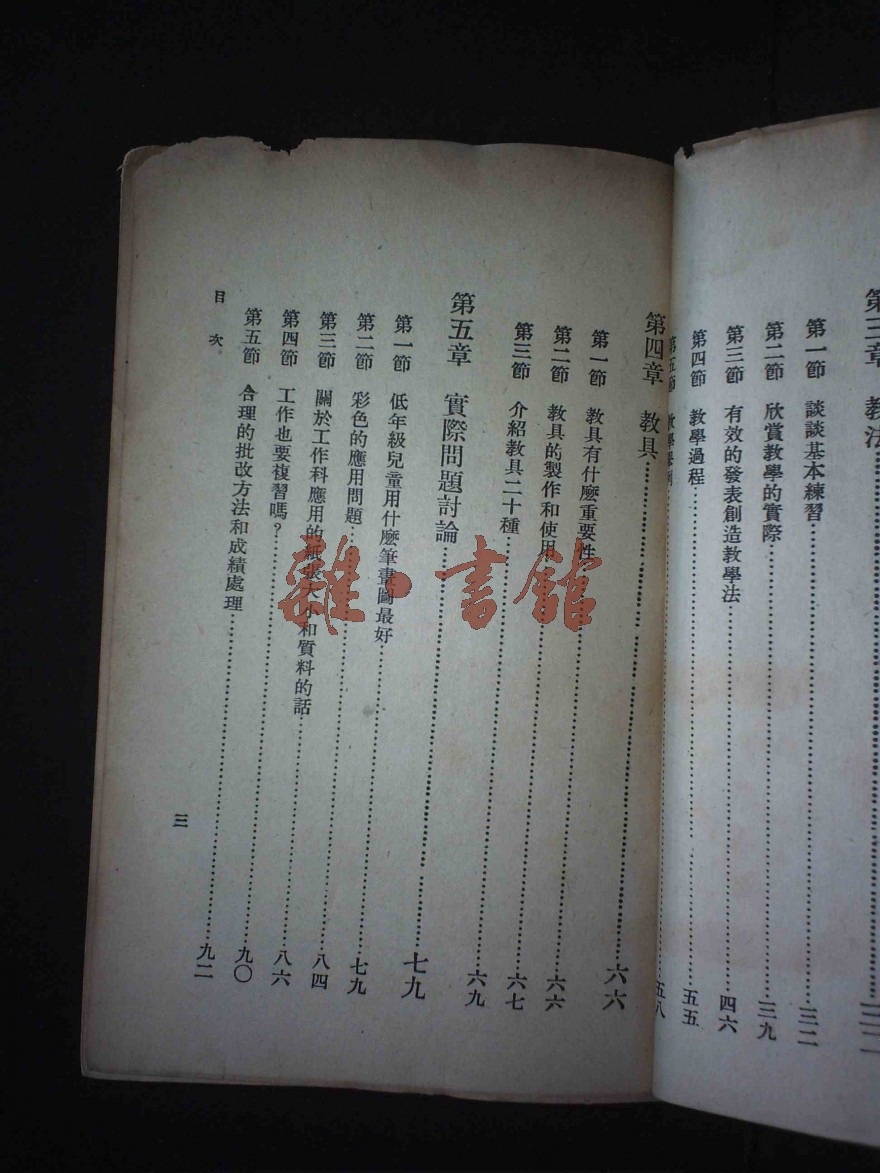 第三章 教法……三二
第一節 談談基本練習……三二
第二節 欣賞教學的實際……三九
第三節 有效的發表創造教學法……四六
第四節 教學過程……五五
第五節 教學舉例……五八
第四章 教具……六六
第一節 教具有什麼重要性……六六
第二節 教具的製作和使用……六七
第三節 介紹教具二十種……六九
第五章 實際問題討論……七九
第一節 低年級兒童用什麼筆畫圖最好……七九
第二節 彩色的應用問題……八四
第三節 關於工作科應用的紙張大小和質料的話……八六
第四節 工作也要複習嗎?……九〇
第五節 合理的批改方法和成績處理……九二
目次
三
雜·書館